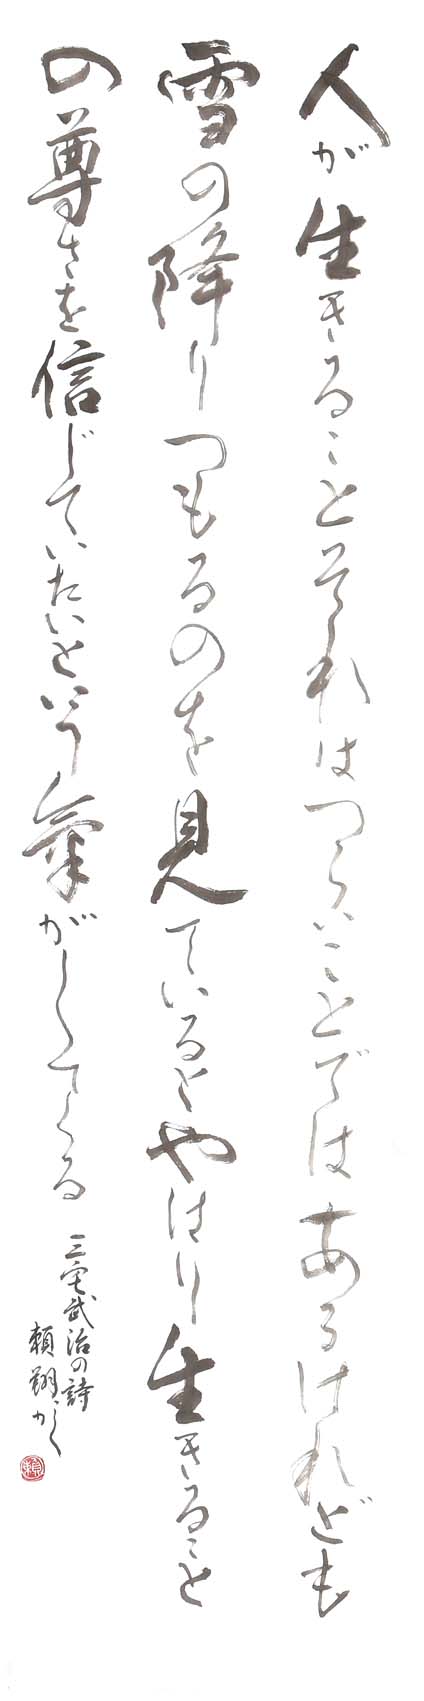 人が生きることそれはつらいことではあるけれども
雪の降りつもるのを見ているとやはり生きること
の尊さを信じていたいという氣がしてくる
三宅武治の詩
頼翔かく
頼